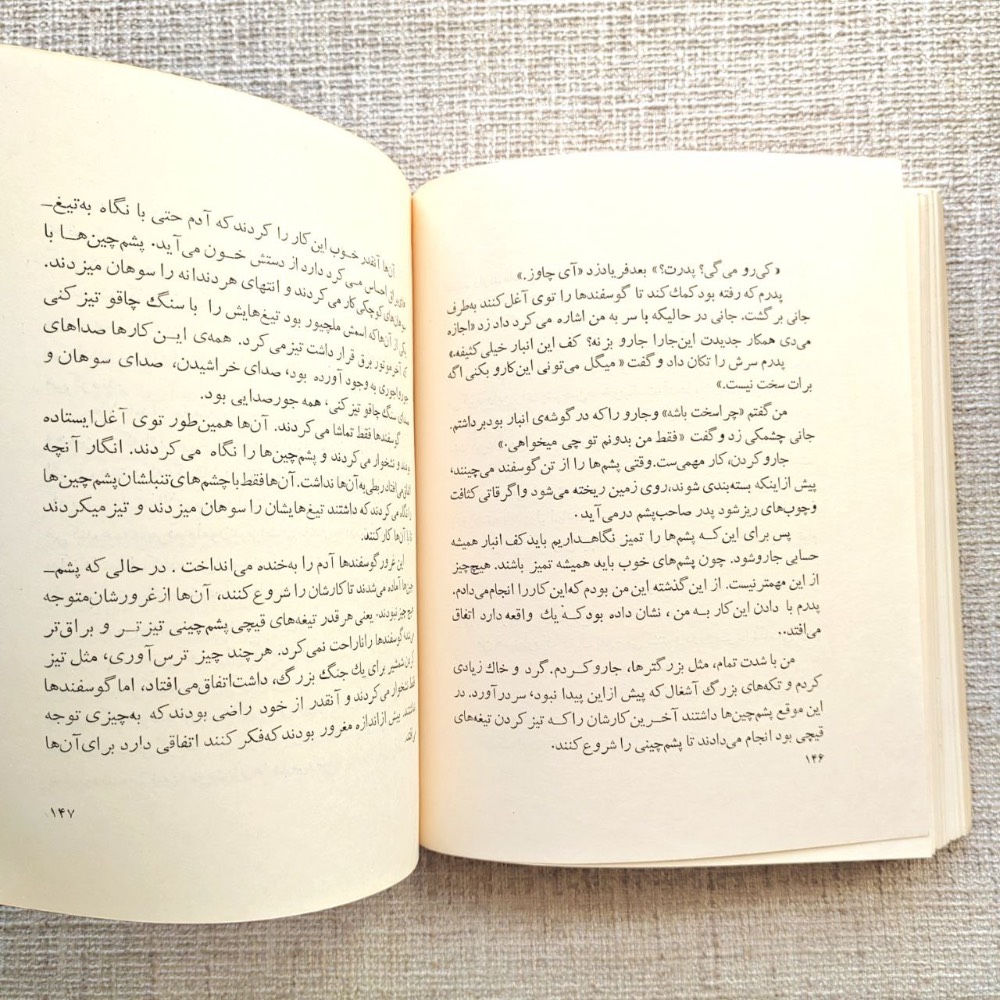 «کی‌رو می‌گی؟ پدرت؟» بعدفریادزد «آی چاوز.»
پدرم که رفته بود کمك کند تا گوسفندها را توی آغل کنند به‌طرف
جانی برگشت. جانی در حالیکه با سر به من اشاره می‌کرد داد زد «اجازه
می‌دی همکار جدیدت این‌جارا جارو بزنه؟ کف این انبار خیلی کثیفه»
پدرم سرش را تکان داد و گفت «میگل می‌تونی این‌کارو بکنی اگه
برات سخت نیست.»
من گفتم «چراسخت باشه» وجارو راکه در گوشه‌ی انبار بودبرداشتم.
جانی چشمکی زد و گفت «فقط من بدونم تو چی میخواهی.»
جاروکردن، کار مهمی‌ست. وقتی پشم‌ها را از تن گوسفند می‌چینند،
پیش ازاینکه بسته‌بندی شوند، روی زمین ریخته می‌شود واگر قاتی کثافت
وچوب‌های ریزشود پدر صاحب‌پشم درمی‌آید.
پس برای این‌که پشم‌ها را تمیز نگاهداریم باید کف انبار همیشه
حسابی جاروشود. چون پشم‌های خوب باید همیشه تمیز باشند. هیچ‌چیز
از این مهمترنیست. از این گذشته این من بودم که این‌کاررا انجام می‌دادم.
پدرم با دادن این‌کار به من، نشان داده بودکه یك واقعه دارد اتفاق
می‌افتد..
من با شدت تمام، مثل بزرگترها، جاروکردم. گرد و خاك زیادی
کردم و تکه‌های بزرگ آشغال که پیش ازاین پیدا نبود، سردرآورد. در
این موقع پشم‌چین‌ها داشتند آخرین کارشان راکه تیز کردن تیغه‌های
قیچی بود انجام می‌دادند تا پشم‌چینی را شروع کنند.
۱۴۶
آن‌ها آنقدر خوب این‌کار را کردندکه آدم حتی با نگاه به‌تیغ‌ـ
احساس می‌کرد دارد از دستش خون می‌آید. پشم‌چین‌ها با
کوچکی کار می‌کردند و انتهای هردندانه را سوهان میزدند.
یکی از آن‌ها که اسمش ملچیور بود تیغ‌هایش را با سنگ چاقو تیز کنی
موتور برق قرار داشت تیز می‌کرد. همه‌ی این‌کارها صداهای
به وجود آورده بود، صدای خراشیدن، صدای سوهان و
صدای سنگ چاقو تیز کنی، همه جورصدایی بود.
گوسفندها فقط تماشا می‌کردند. آن‌ها همین‌طور توی آغل ایستاده
بودند و نشخوار می‌کردند و پشم‌چین‌ها را نگاه می‌کردند. انگار آنچه
ربطی به آن‌ها نداشت. آن‌هافقط باچشم‌های تنبلشان پشم‌چین‌ها
را نگاه می‌کردند که داشتند تیغ‌هایشان را سوهان میزدند و تیز میکردند
تا با آن‌ها کار کنند.
این غرور گوسفندها آدم را به‌خنده می‌انداخت. در حالی که پشم‌ـ
چین‌ها آماده می‌شدند تا کارشان را شروع کنند، آن‌ها ازغرورشان‌متوجه
هیچ چیز نبودند. یعنی هر قدر تیغه‌های قیچی پشم‌چینی تیزتر و براق‌تر
گوسفندها را ناراحت نمی‌کرد. هرچند چیز ترس‌آوری، مثل تیز
کردن شمشیر برای یك جنگ بزرگ، داشت‌اتفاق‌می‌افتاد، اما گوسفندها
فقط نشخوار می‌کردند و آنقدر از خود راضی بودندکه به‌چیزی توجه
بیش ازاندازه مغرور بودند که‌فکر کنند اتفاقی دارد برای آن‌ها
۱۴۷